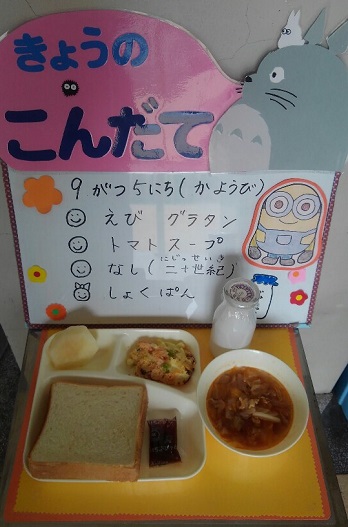 きょうの
こんだて
9がつ5にち(かようび)
えび グラタン
トマトスープ
なし(二十世紀)
にじっせいき
しょくぱん